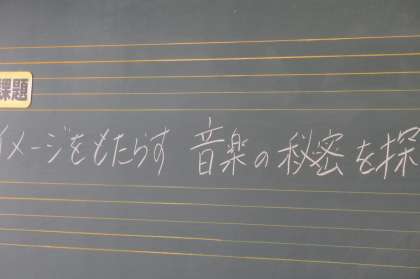 課題
イメージをもたらす 音楽の秘密を探